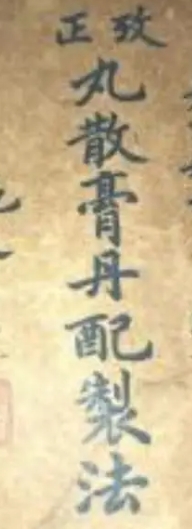 攷正
丸散膏丹配製法